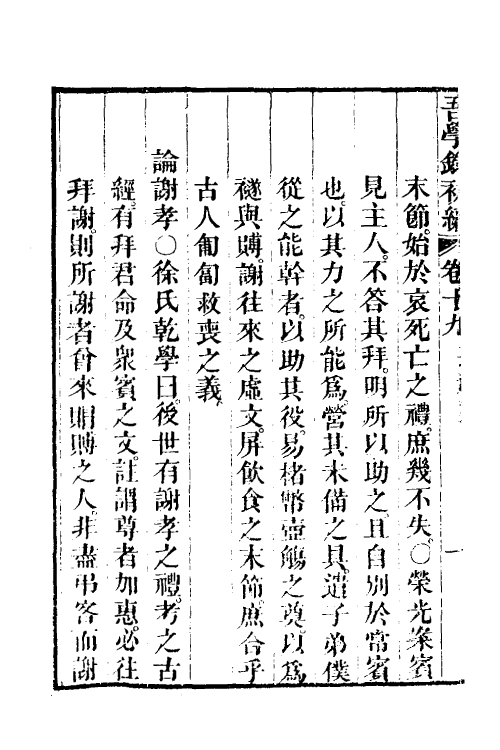 吾學錄初編 卷十九
末節。始於哀死亡之禮。庶幾不失。○榮光案賓
見主人。不答其拜。明所以助之且自別於常賓
也。以其力之所能爲。營其未備之具。遣子弟僕
從之能幹者。以助其役。易楮幣壺觴之奠。以爲
襚與賻。謝往來之虛文。屏飲食之末節。庶合乎
古人匍匐救喪之義
論謝孝○徐氏乾學曰。後世有謝孝之禮。考之古
經。有拜君命及衆賓之文。註謂尊者加惠。必往
拜謝。則所謝者曾來賵賻之人。非盡弔客而謝